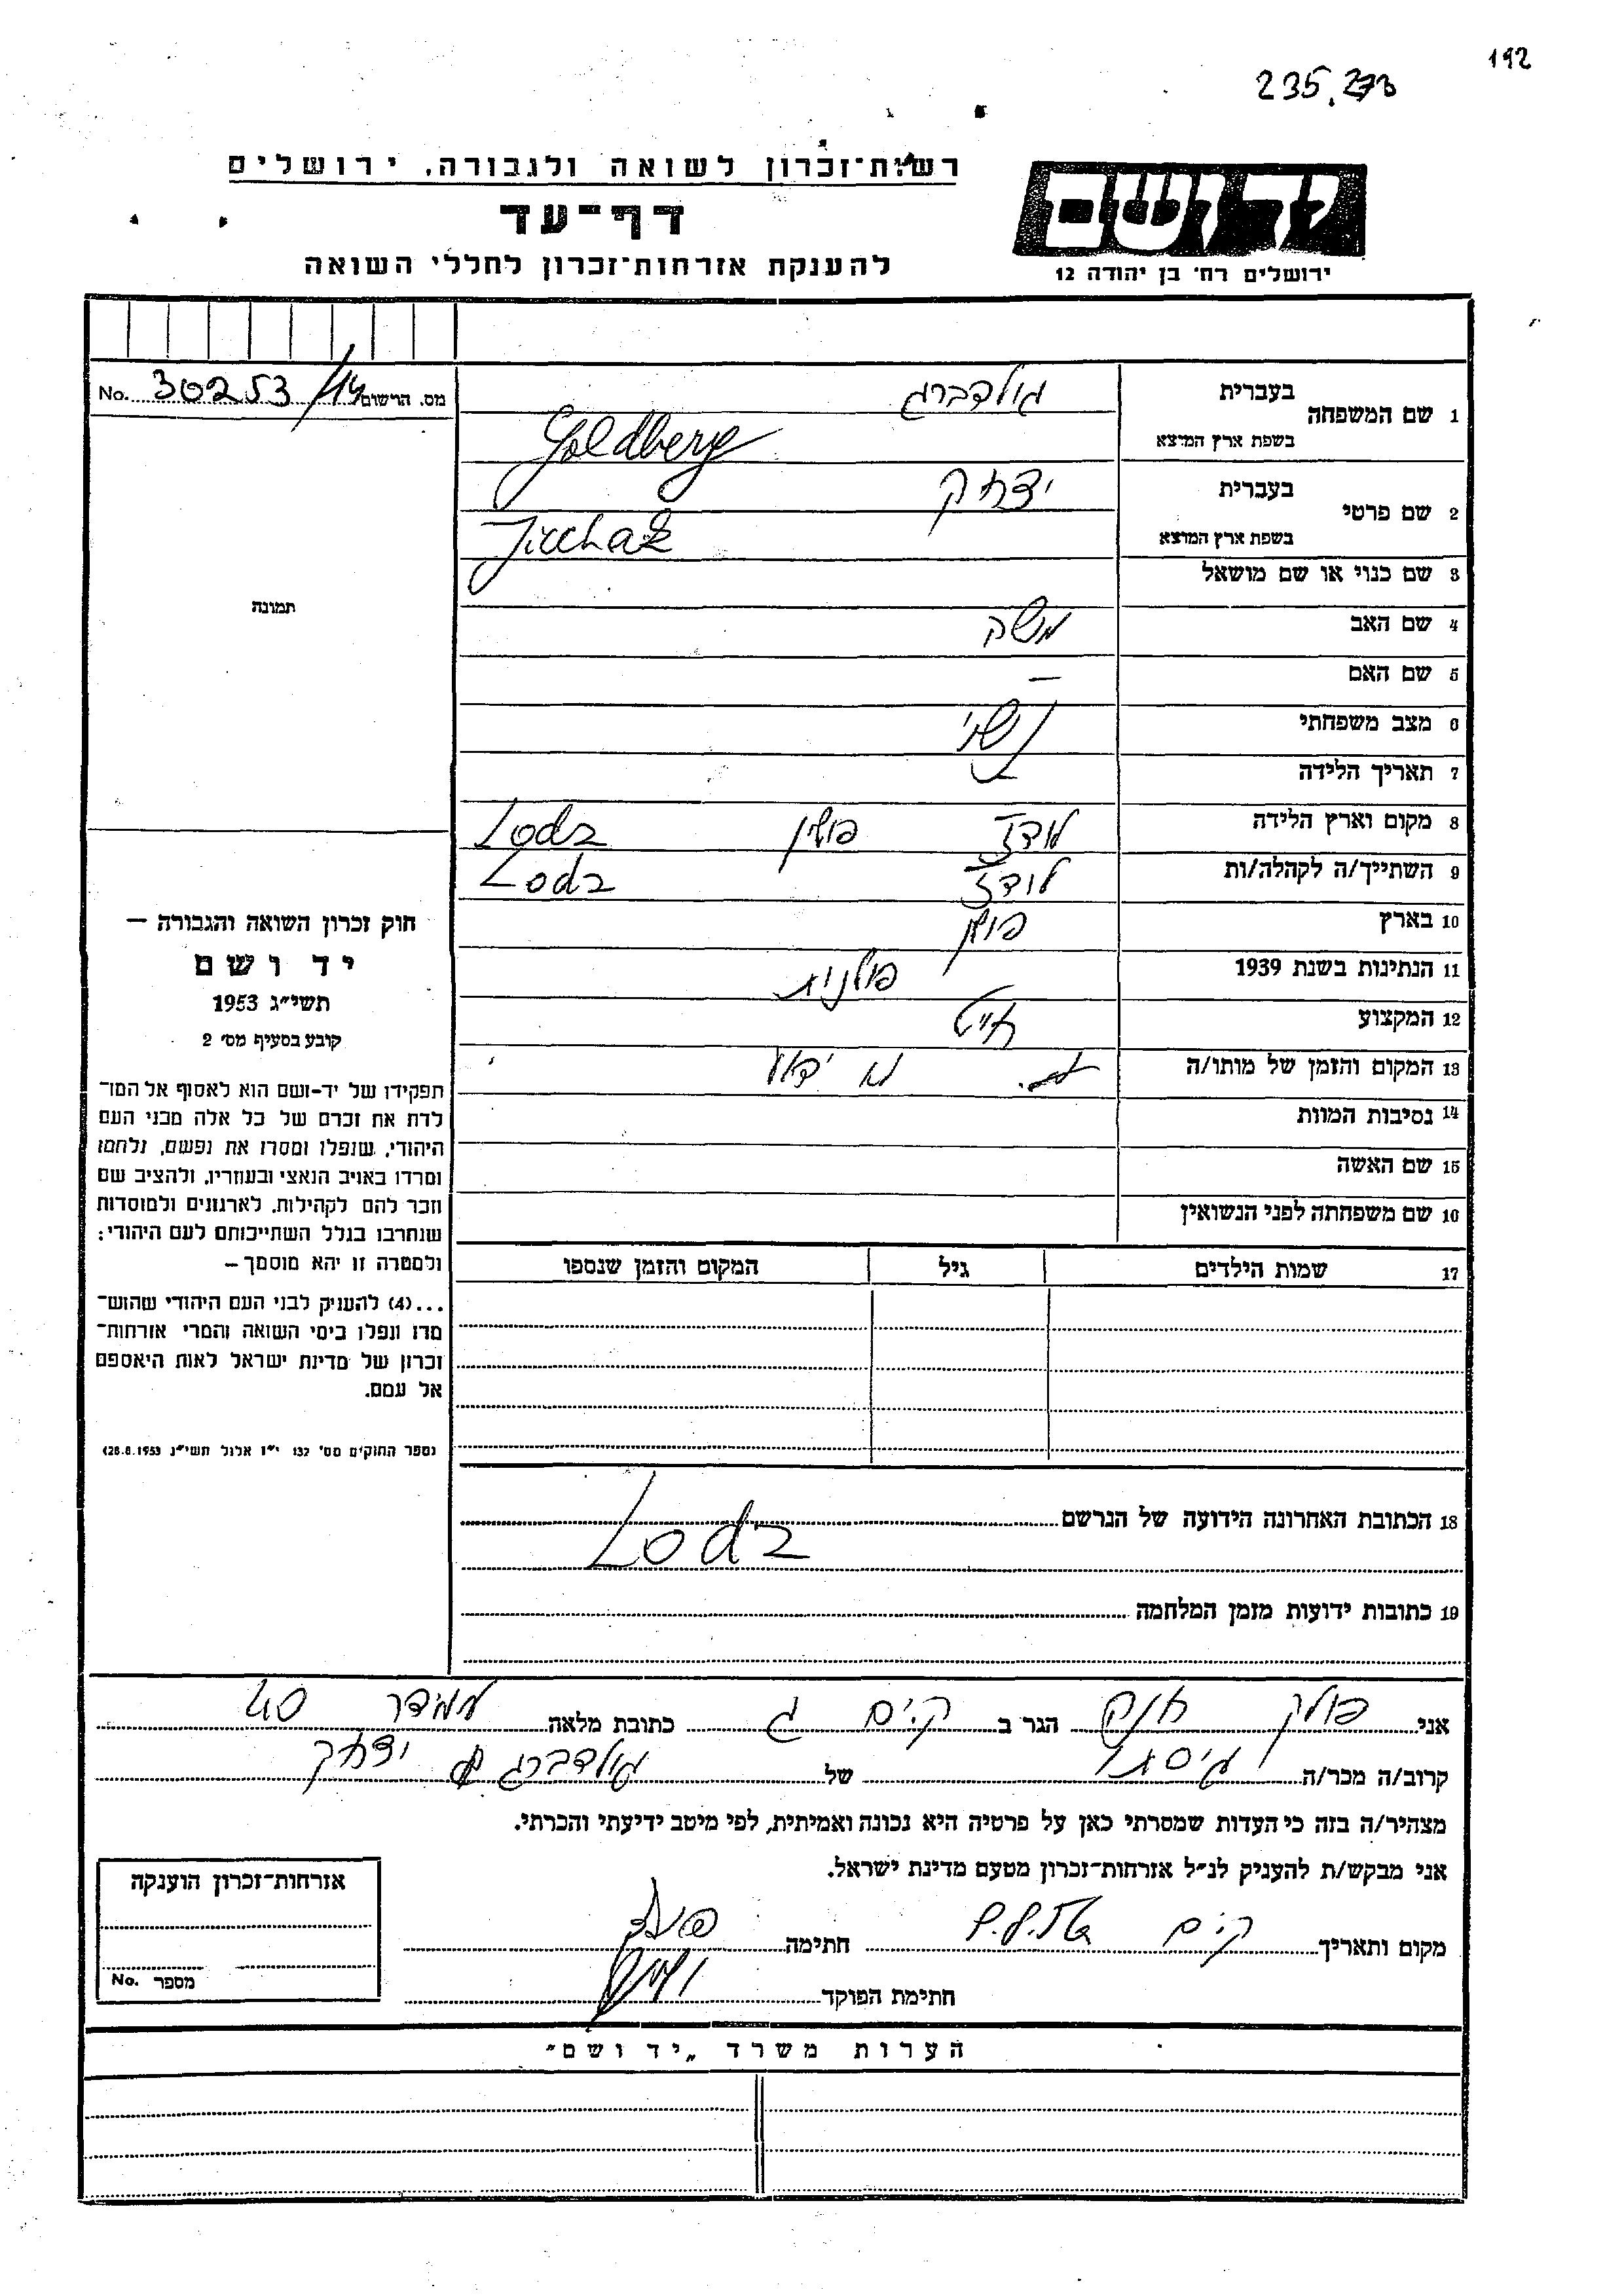 192
235.273
רשות־זכרון לשואה ולגבורה, ירושלים
יד ושם
דף־עד
להענקת אזרחות־זכרון לחללי השואה
ירושלים רח׳ בן יהודה 12
No. 30253/14 מס. הרשום
1 שם המשפחה בעברית גולדברג
בשפת ארץ המוצא Goldberg
2 שם פרטי בעברית יצחק
בשפת ארץ המוצא Jicchak
3 שם כנוי או שם מושאל
תמונה
4 שם האב משה
5 שם האם —
6 מצב משפחתי נשוי
7 תאריך הלידה
8 מקום וארץ הלידה לודז פולין Lodz
9 השתייך/ה לקהלה/ות לודז Lodz
10 בארץ פולין
11 הנתינות בשנת 1939 פולנית
12 המקצוע חייט
13 המקום והזמן של מותו/ה לא ידוע
14 נסיבות המוות
15 שם האשה
16 שם משפחתה לפני הנשואין
17 שמות הילדים גיל המקום והזמן שנספו
חוק זכרון השואה והגבורה —
יד ושם
תשי״ג 1953
קובע בסעיף מס׳ 2
תפקידו של יד-ושם הוא לאסוף אל המו־
לדת את זכרם של כל אלה מבני העם
היהודי, שנפלו ומסרו את נפשם, נלחמו
ומרדו באויב הנאצי ובעוזריו, ולהציב שם
וזכר להם לקהילות, לארגונים ולמוסדות
שנחרבו בגלל השתייכותם לעם היהודי;
ולמטרה זו יהא מוסמך —
...(4) להעניק לבני העם היהודי שהוש־
מדו ונפלו בימי השואה והמרי אזרחות־
זכרון של מדינת ישראל לאות היאספם
אל עמם.
(ספר החוקים מס׳ 132 י״ז אלול תשי״ג 28.8.1953)
18 הכתובת האחרונה הידועה של הנרשם
Lodz
19 כתובות ידועות מזמן המלחמה
אני פולק חנה הגר ב ק.ים ג כתובת מלאה עמידר 40
קרוב/ה מכר/ה גיסתו של גולדברג יצחק
מצהיר/ה בזה כי העדות שמסרתי כאן על פרטיה היא נכונה ואמיתית, לפי מיטב ידיעתי והכרתי.
אני מבקש/ת להעניק לנ״ל אזרחות־זכרון מטעם מדינת ישראל.
מקום ותאריך ק.ים חתימה
חתימת הפוקד
אזרחות־זכרון הוענקה
מספר No.
הערות משרד „יד ושם״